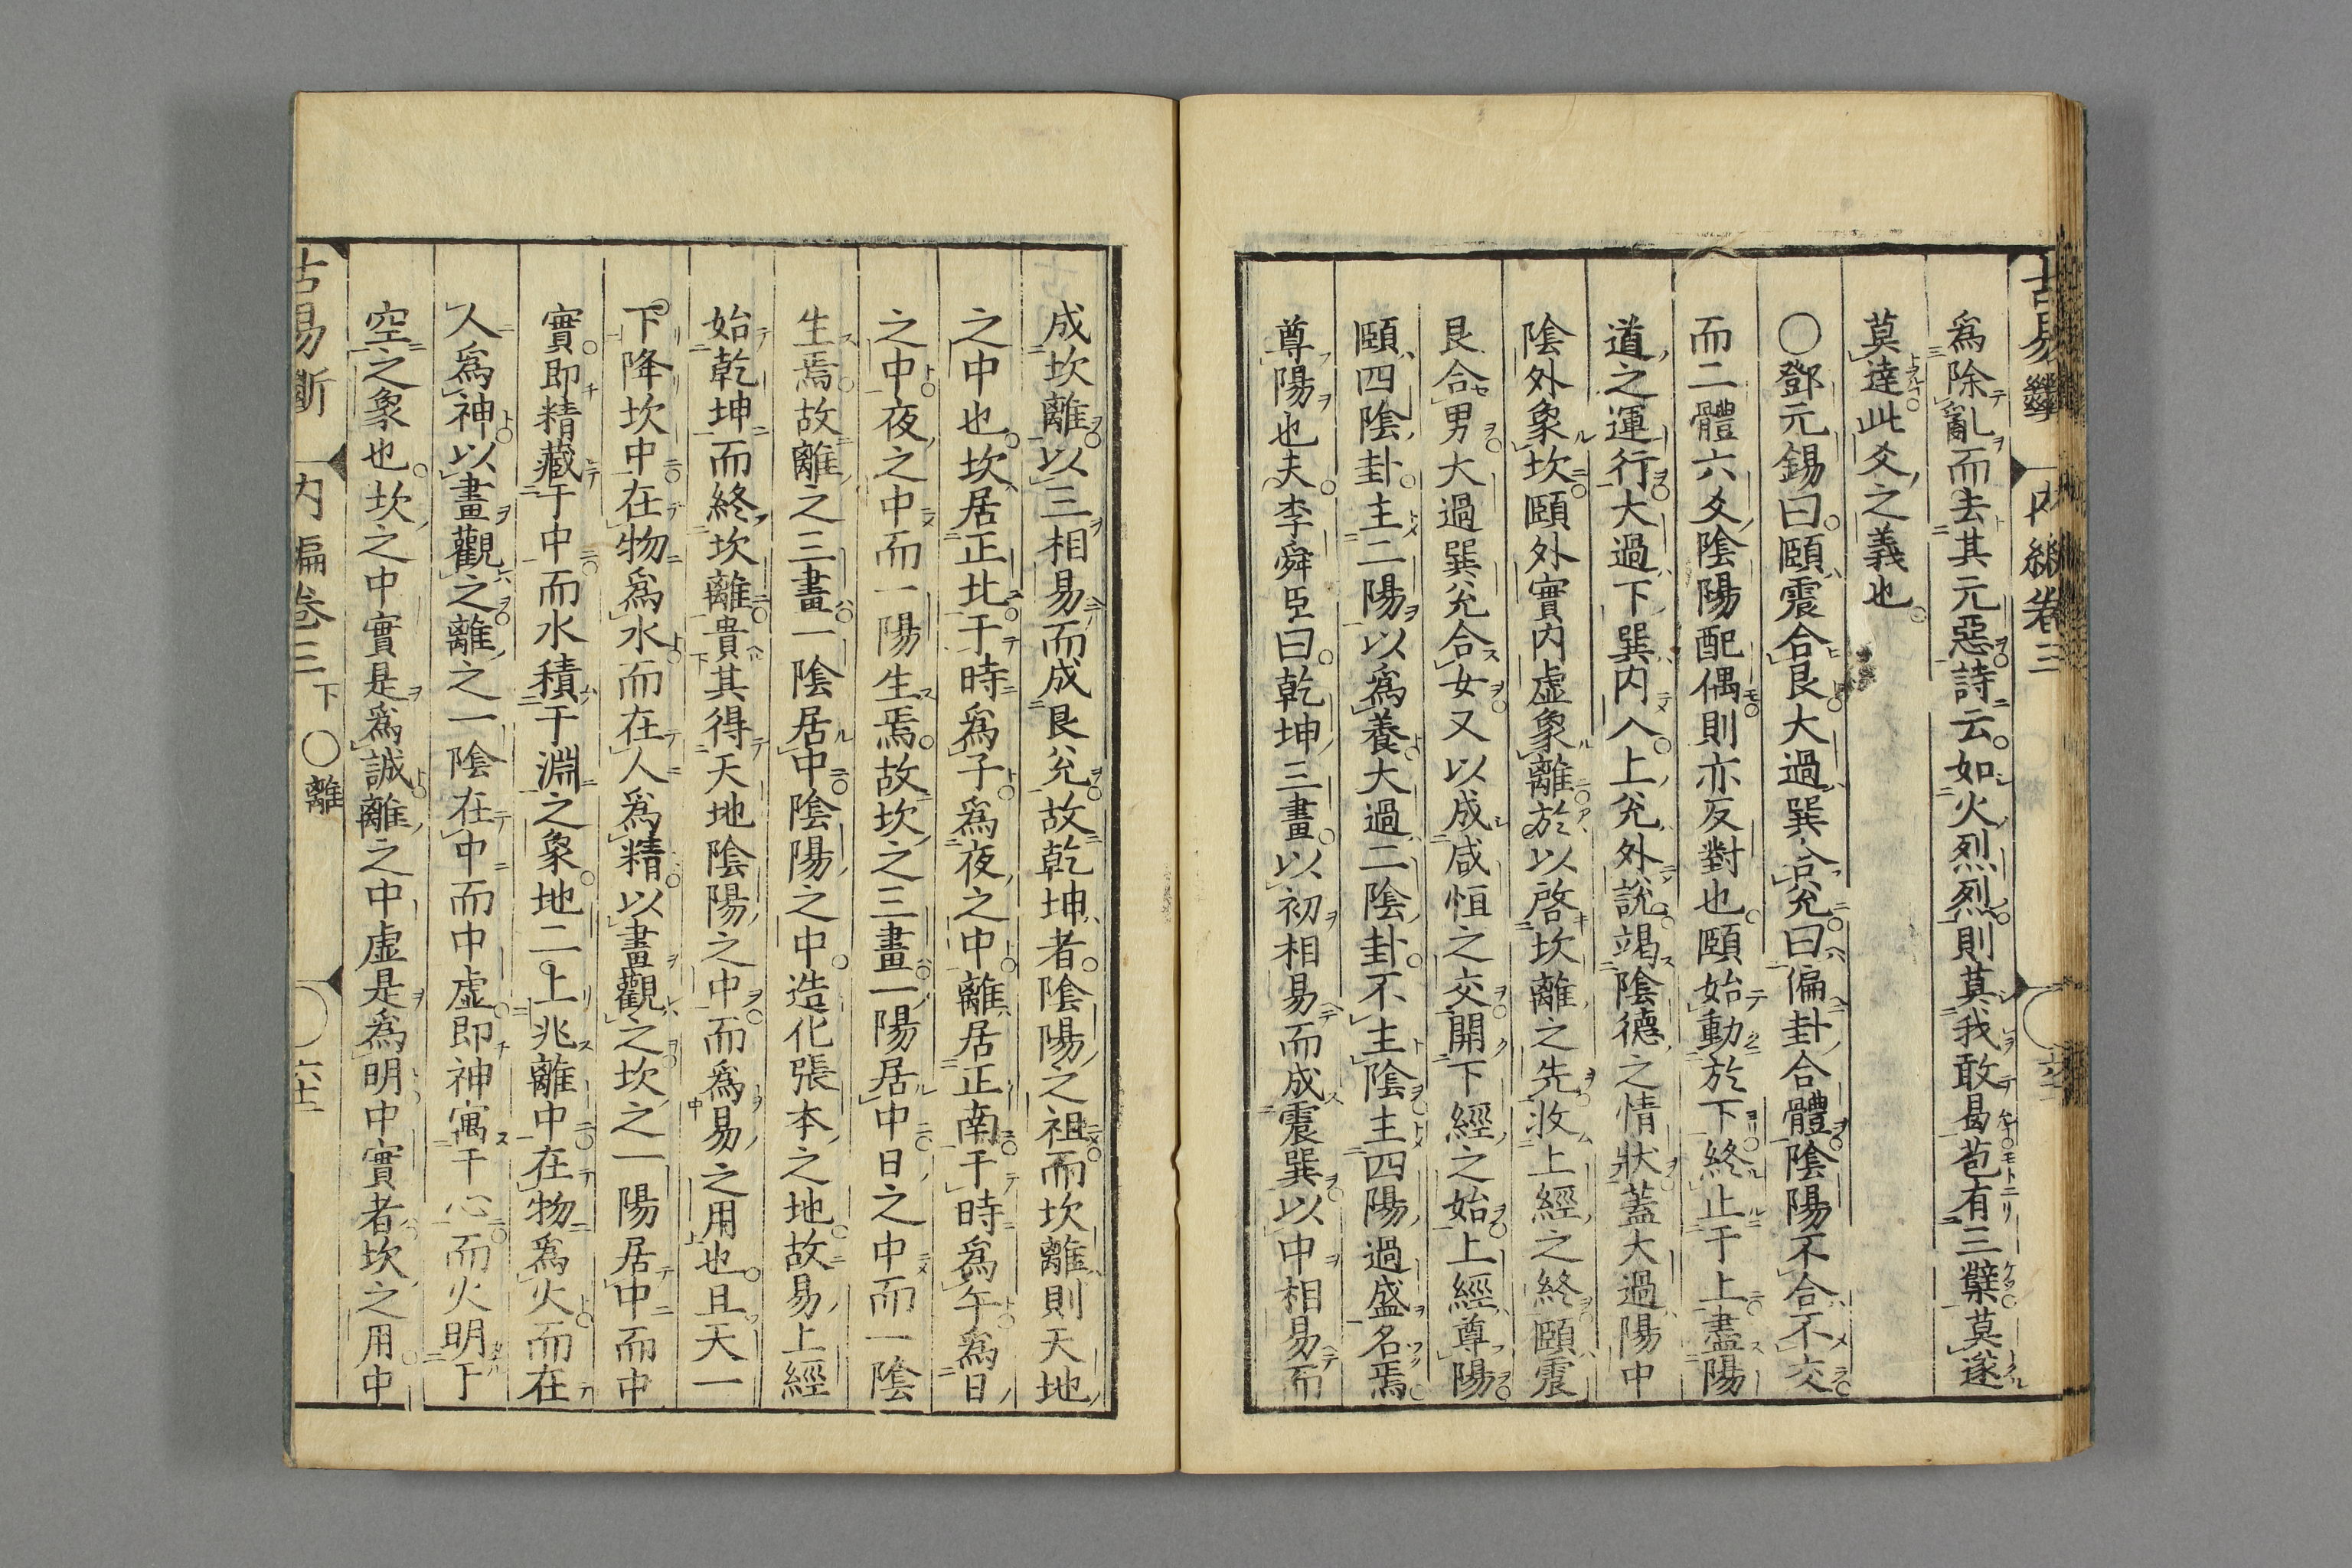 爲除亂而去其元惡詩云如火烈烈則莫我敢曷苞有三蘖莫遂
莫達此爻之義也
〇鄧元錫曰頤震合艮大過巽合兊曰偏卦合體陰陽不合不交
而二體六爻陰陽配偶則亦反對也頤始動於下終止于上盡陽
道之運行大過下巽内入上兊外說竭陰德之情狀蓋大過陽中
陰外象坎頤外實内虚象離於以啓坎離之先收上經之終頤震
艮合男大過巽兊合女又以成咸恒之交開下經之始上經尊陽
頤四陰卦主二陽以爲養大過二陰卦不主陰主四陽過盛名焉
尊陽也夫李舜臣曰乾坤三畫以初相易而成震巽以中相易而
成坎離以三相易而成艮兊故乾坤者陰陽之祖而坎離則天地
之中也坎居正北于時爲子爲夜之中離居正南于時爲午爲日
之中夜之中而一陽生焉故坎之三畫一陽居中日之中而一陰
生焉故離之三畫一陰居中陰陽之中造化張本之地故易上經
始乾坤而終坎離貴其得天地陰陽之中而爲易之用也且天一
下降坎中在物爲水而在人爲精以畫觀之坎之一陽居中而中
實即精藏于中而水積于淵之象地二上兆離中在物爲火而在
人爲神以畫觀之離之一陰在中而中虚即神寓于心而火明于
空之象也坎之中實是爲誠離之中虚是爲明中實者坎之用中
古易斷 内編卷三 下 〇離 六十二